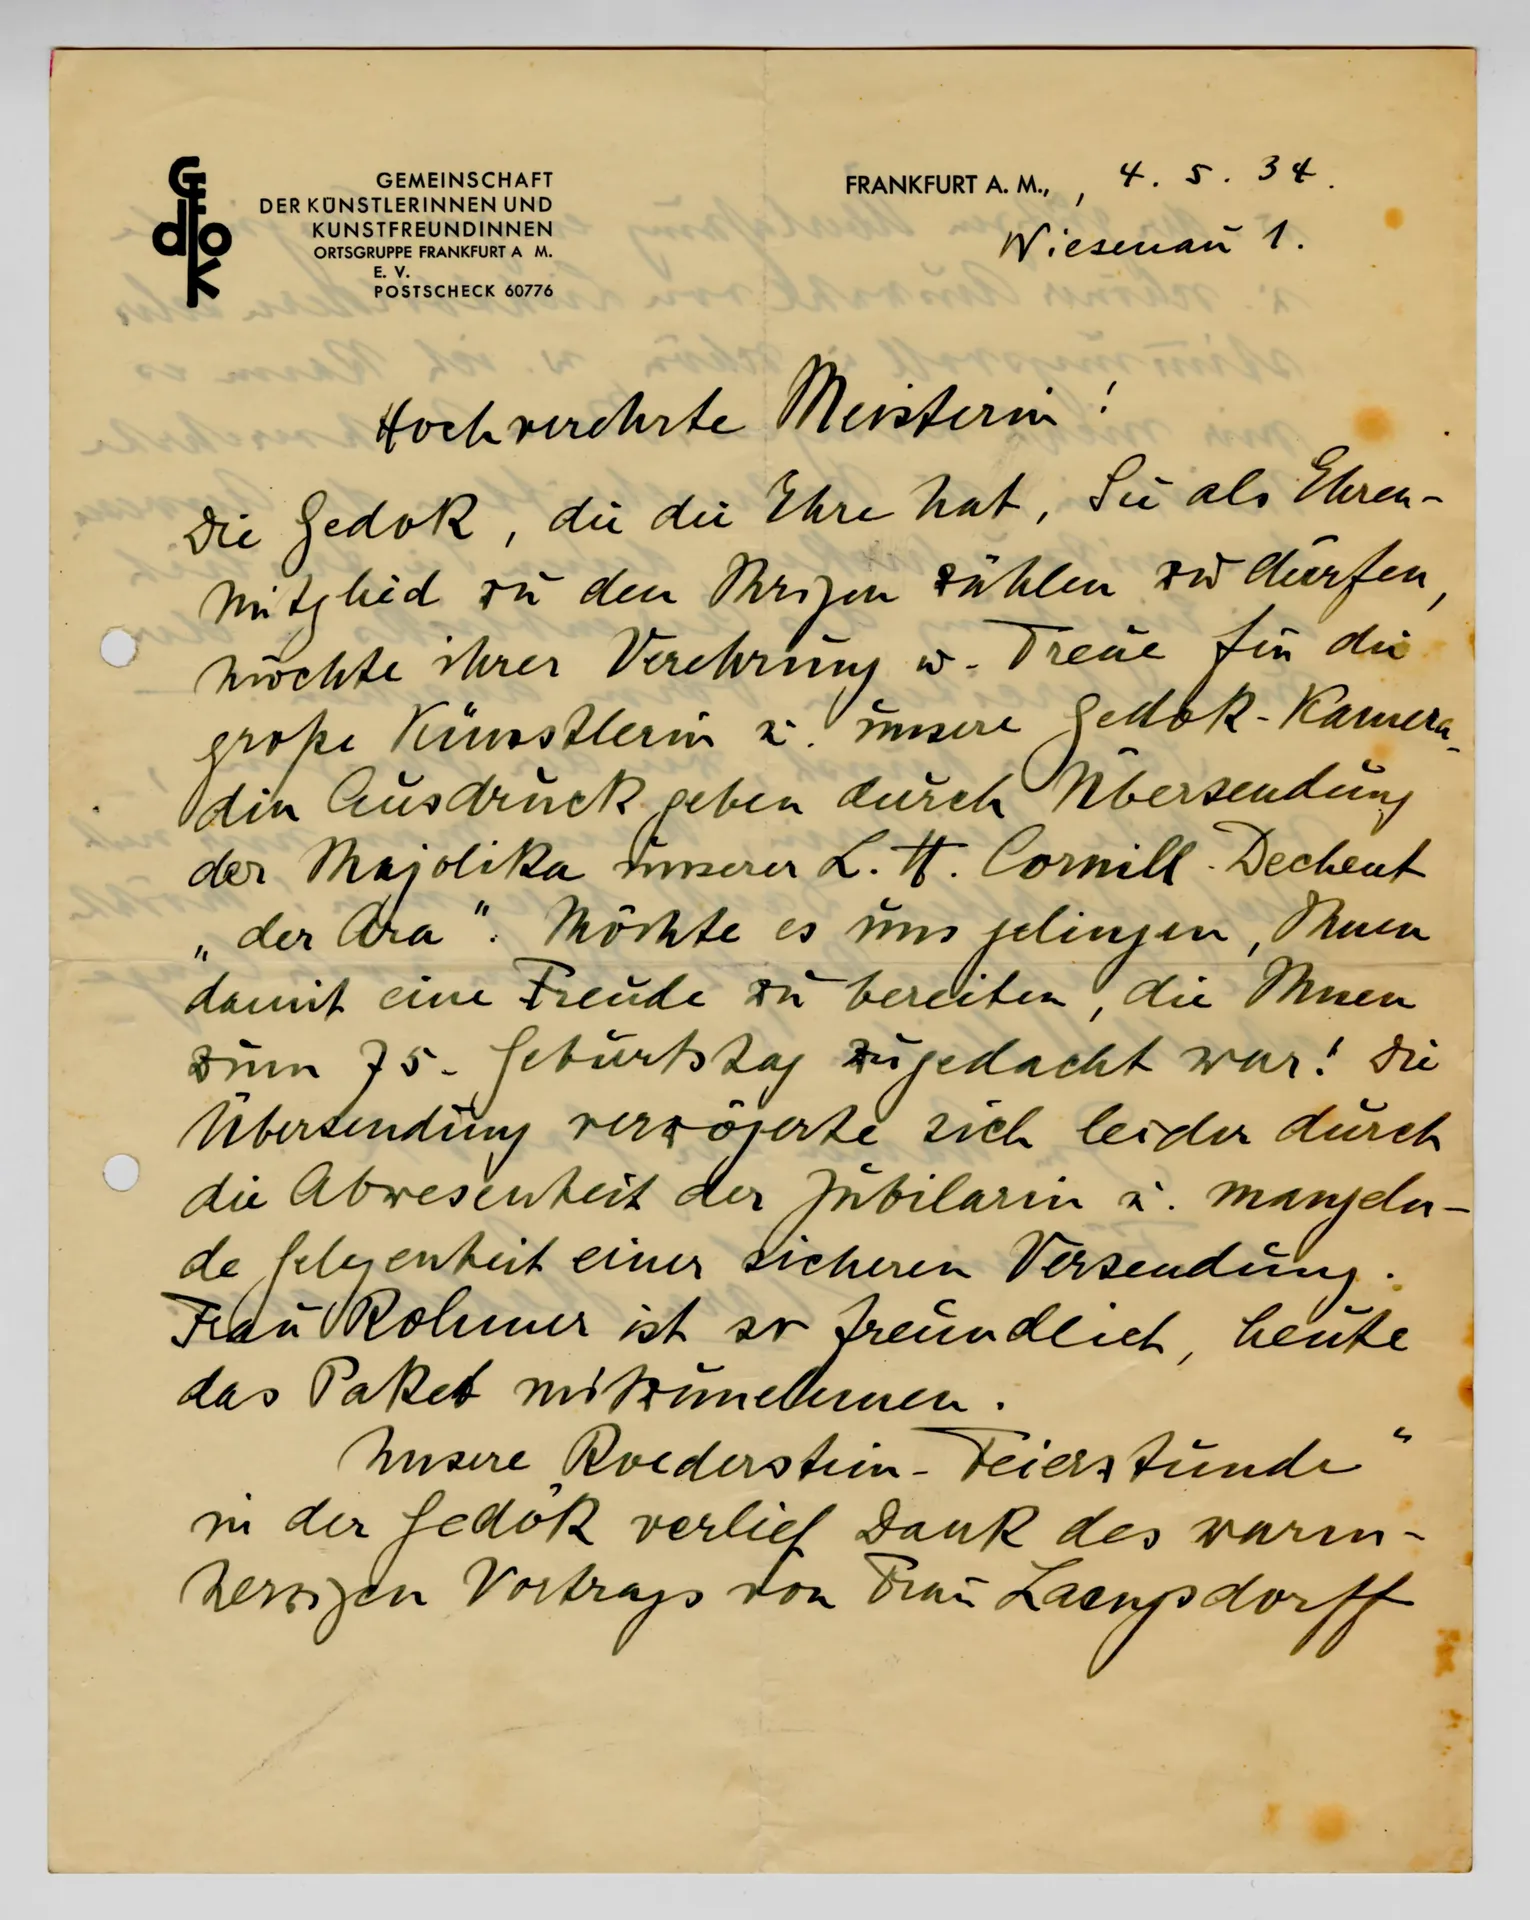 GEDOK
GEMEINSCHAFT
DER KÜNSTLERINNEN UND
KUNSTFREUNDINNEN
ORTSGRUPPE FRANKFURT A M.
E. V.
POSTSCHECK 60776
FRANKFURT A. M., , 4. 5. 34.
Wiesenau 1.
Hochverehrte Meisterin!
Die Gedok, die die Ehre hat, Sie als Ehren-
mitglied zu den Ihrigen zählen zu dürfen,
möchte ihrer Verehrung u. Treue für die
große Künstlerin u. unsere Gedok-Kamera-
din Ausdruck geben durch Übersendung
der Majolika unserer L. H. Cornill-Dechent
„der Ara". Möchte es uns gelingen, Ihnen
damit eine Freude zu bereiten, die Ihnen
zum 75. Geburtstag zugedacht war! Die
Übersendung verzögerte sich leider durch
die Abwesenheit der Jubilarin u. mangeln-
de Gelegenheit einer sicheren Versendung.
Frau Rohmer ist so freundlich, heute
das Paket mitzunehmen.
Unsere Roederstein-Feierstunde"
in der Gedok verlief Dank des warm-
herzigen Vortrags von Frau Laengsdorff